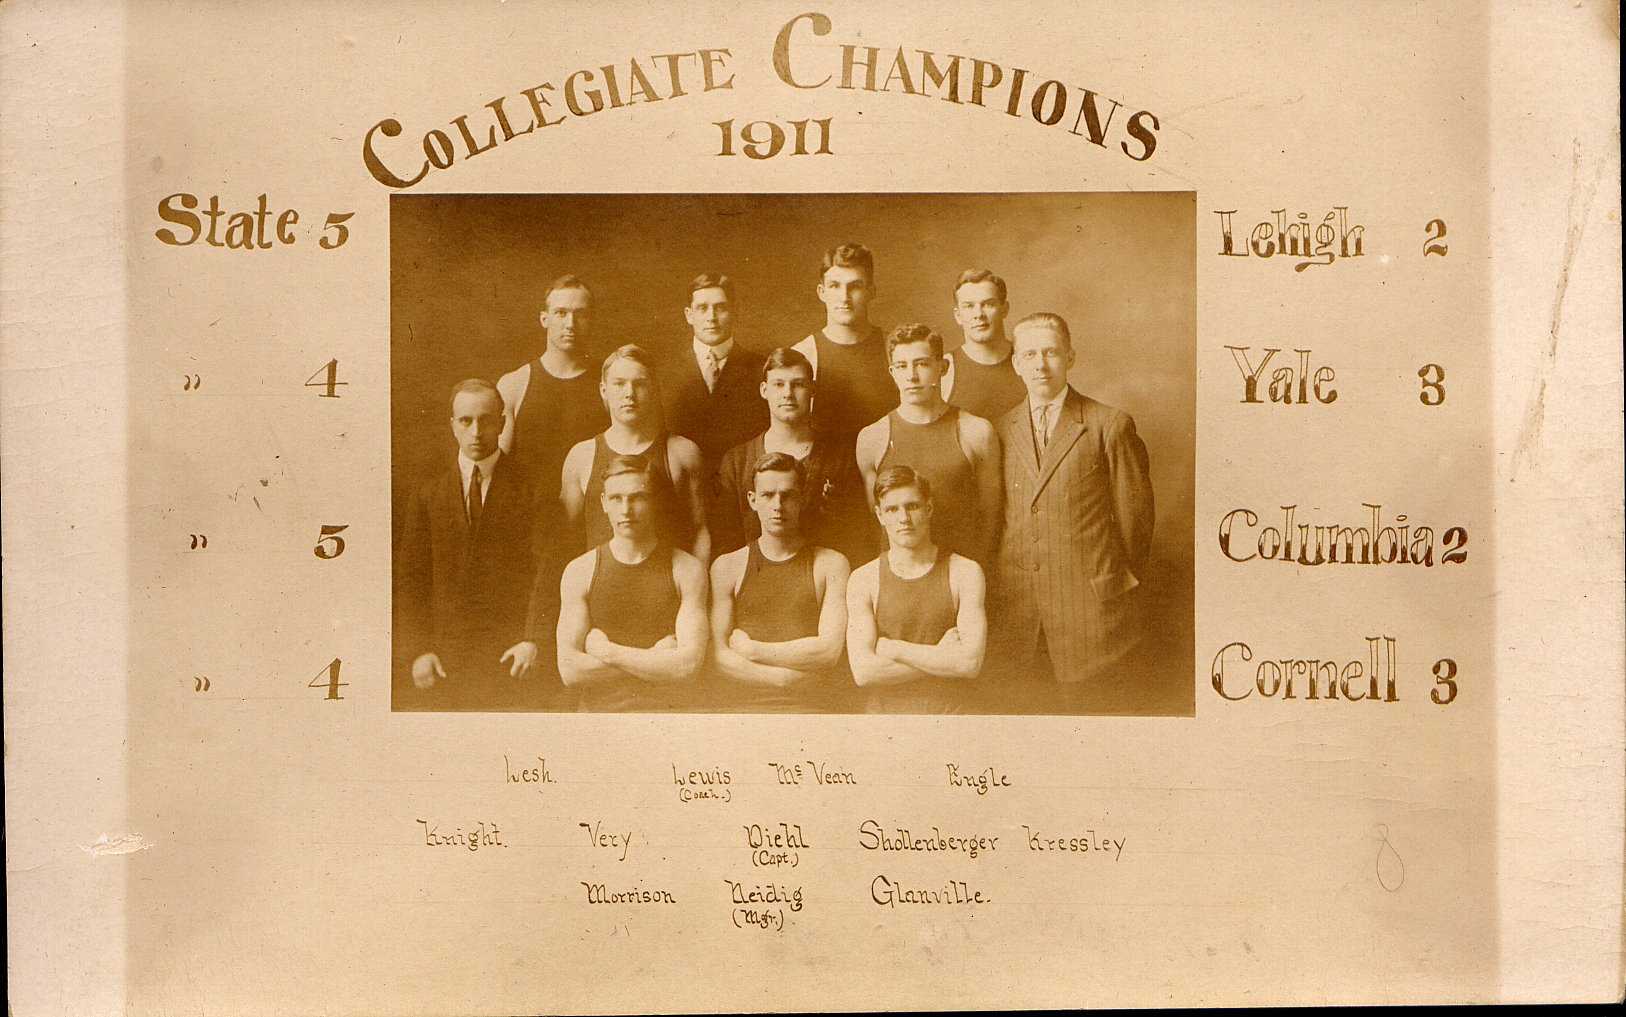 COLLEGIATE CHAMPIONS
1911
State 5 Lehigh 2
" 4 Yale 3
" 5 Columbia 2
" 4 Cornell 3
Lesh. Lewis McVean Engle
(Coach.)
Knight. Very Diehl Shollenberger Kressley
(Capt.)
Morrison Neidig Glanville.
(Mgr.)
8